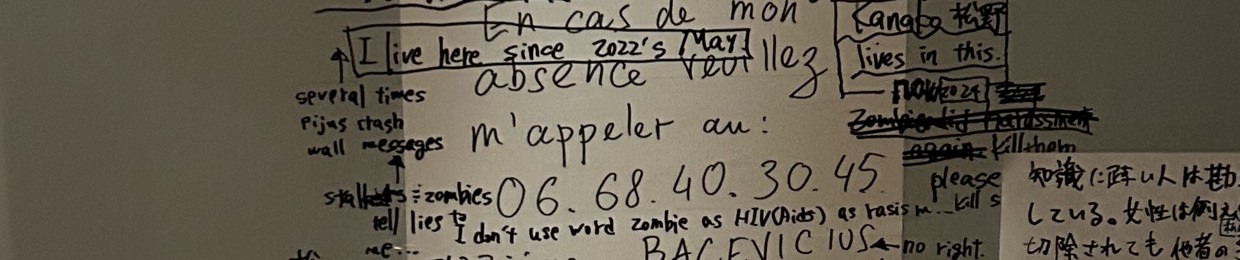 En cas de mon
I live here since 2022's May
absence veuillez
m'appeler au:
06. 68. 40. 30. 45
several times
Pijas trash
wall messages
zombies
tell lies to
me...
I don't use word zombie as HIV(Aids) as rasism...
BACEVICIUS ← no right.
松野
lives in this.
now 2024
kill them
please
kill s
知識に疎い人は勘
している。女性は例え
切除されても他者の